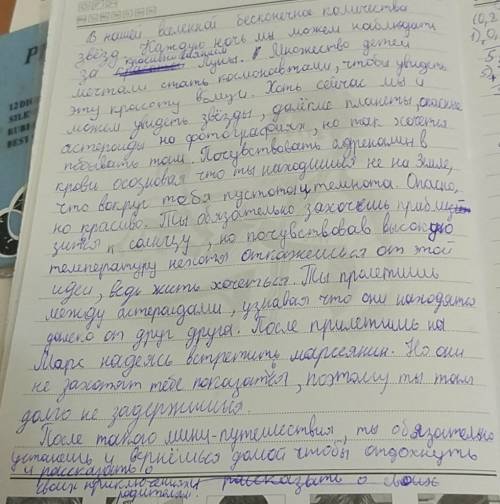 В нашей вселенной бесконечное количество
звёзд. Каждую ночь мы можем наблюдать
за красивым сиянием Луны. Множество детей
мечтали стать космонавтами, чтобы увидеть
эту красоту вблизи. Хоть сейчас мы и
можем увидеть звёзды, далёкие планеты, опасные
астероиды на фотографиях, но так хочется
побывать там. Почувствовать адреналин в
крови осозновая что ты находишися не на Земле,
что вокруг тебя пустота и темнота. Опасно,
но красиво. Ты обязательно захочешь прибли
зится к солнцу, но почувствовав высокую
температуру откажешься от этой
идеи, ведь жить хочеться. Ты пролетишь
между астероидами, узнавая что они находятся
далеко от друг друга. После прилетишь на
Марс надеясь встретить марсеянин. Но они
не захотят тебе показатся, поэтому ты там
долго не задержишся.
После такого мини-путешествия, ты обязательно
устанешь и вернёшься домой чтобы отдохнуть
и рассказать о
своих приключениях рассказать о своих
родителям.
12 DIC
SIL
RUBI
BEST